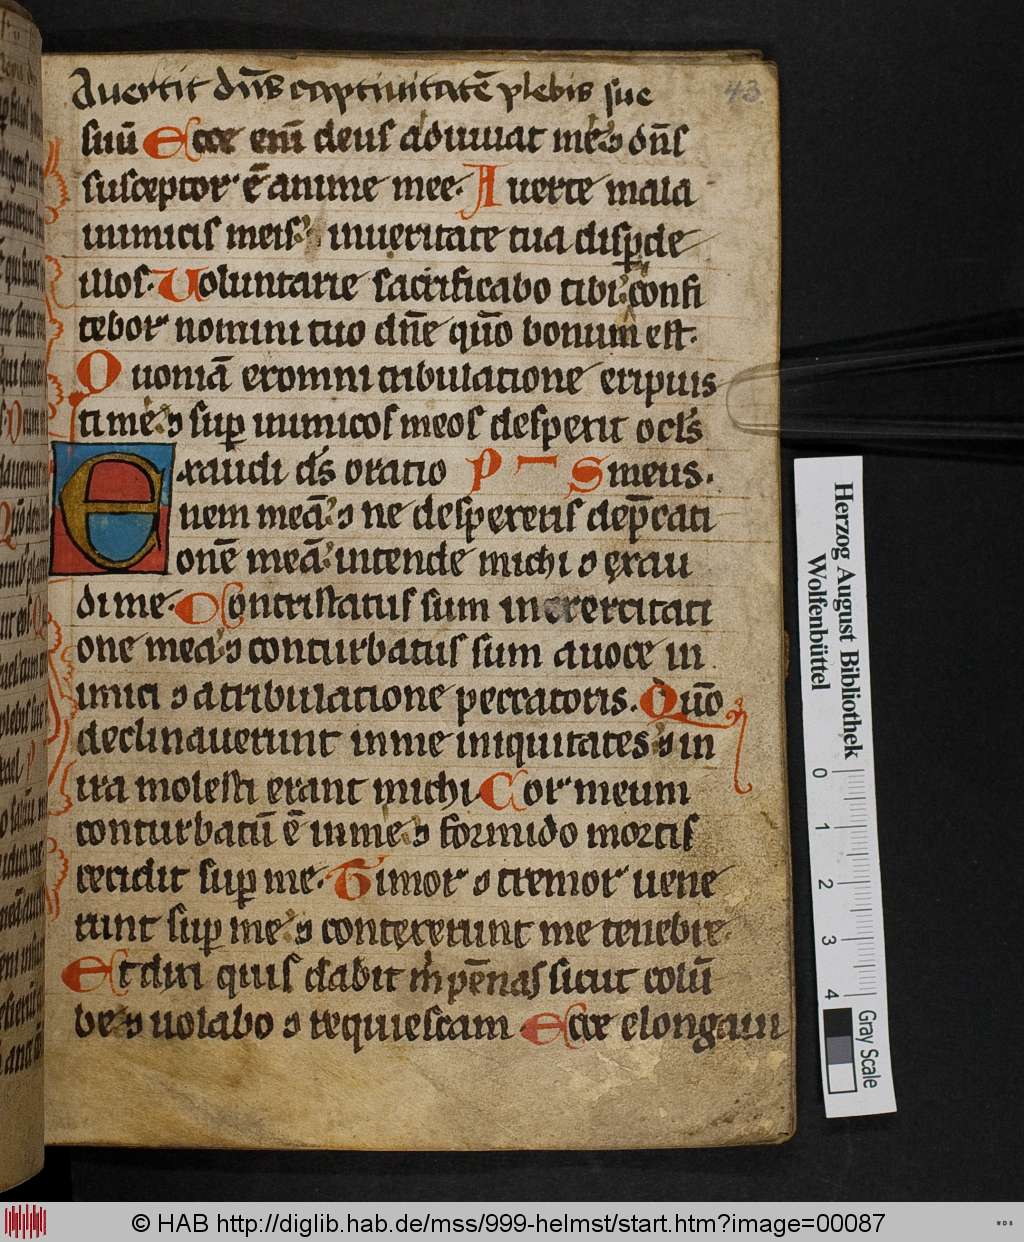 Auertit dñs captiuitatē plebis sue
43
suū Ecce eni̅ deus adiuuat me ⁊ dñs
susceptor ē anime mee. Auerte mala
inimicis meis. inueritate tua disp̱de
illos. Uoluntarie sacrificabo tibi confi
tebor nomini tuo dñe qūo bonum est.
Quoniā exomni tribulatione eripuis
ti me ⁊ sup̱ inimicos meos desperit ocl's
Exaudi ds̄ oratio P S meus.
nem meā ⁊ ne despexeris dep̄cati
onē meā intende michi ⁊ exau
di me. Contristatus sum in exercitati
one mea ⁊ conturbatus sum auoce in
imici ⁊ atribulatione peccatoris. Quō
declinauerunt inme iniquitates ⁊ in
ira molesti erant michi. Cor meum
conturbatū ē inme ⁊ formido mortis
cecidit sup̱ me. Timor ⁊ tremor uene
runt sup̱ me ⁊ contexerunt me tenebre.
Et dixi quis dabit m̄ pēnas sicut colū
be ⁊ uolabo ⁊ requiescam Ecce elongaui
Herzog August Bibliothek
Wolfenbüttel
0 1 2 3 4
Gray Scale
© HAB http://diglib.hab.de/mss/999-helmst/start.htm?image=00087